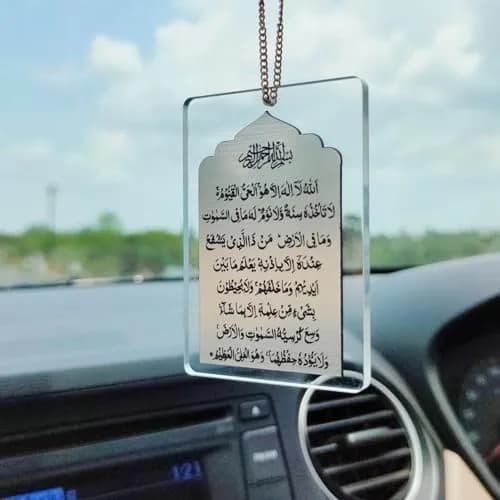 بسم الله الرحمن الرحيم
اَللّٰهُ لَآ اِلٰهَ اِلَّا هُوَ الْحَىُّ الْقَيُّوْمُ
لَا تَاْخُذُهٗ سِنَةٌ وَّلَا نَوْمٌ لَهٗ مَا فِى السَّمٰوٰتِ
وَمَا فِى الْاَرْضِ مَنْ ذَا الَّذِىْ يَشْفَعُ
عِنْدَهٗٓ اِلَّا بِاِذْنِهٖ يَعْلَمُ مَا بَيْنَ
اَيْدِيْهِمْ وَمَا خَلْفَهُمْ وَلَا يُحِيْطُوْنَ
بِشَىْءٍ مِّنْ عِلْمِهٖٓ اِلَّا بِمَا شَآءَ
وَسِعَ كُرْسِيُّهُ السَّمٰوٰتِ وَالْاَرْضَ
وَلَا يَئُوْدُهٗ حِفْظُهُمَا وَهُوَ الْعَلِىُّ الْعَظِيْمُ
121